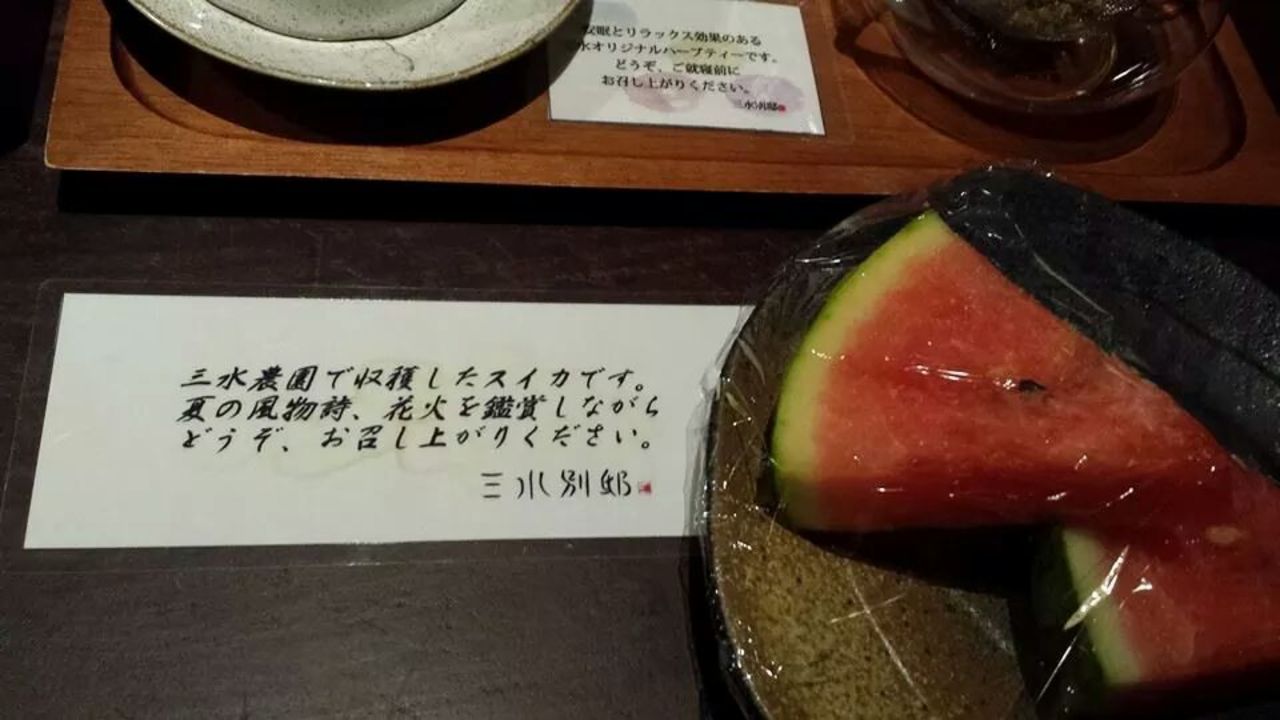 安眠とリラックス効果のある
水オリジナルハーブティーです。
どうぞ、ご就寝前に
お召し上がりください。
三水別邸
三水農園で収穫したスイカです。
夏の風物詩、花火を鑑賞しながら
どうぞ、お召し上がりください。
三水別邸